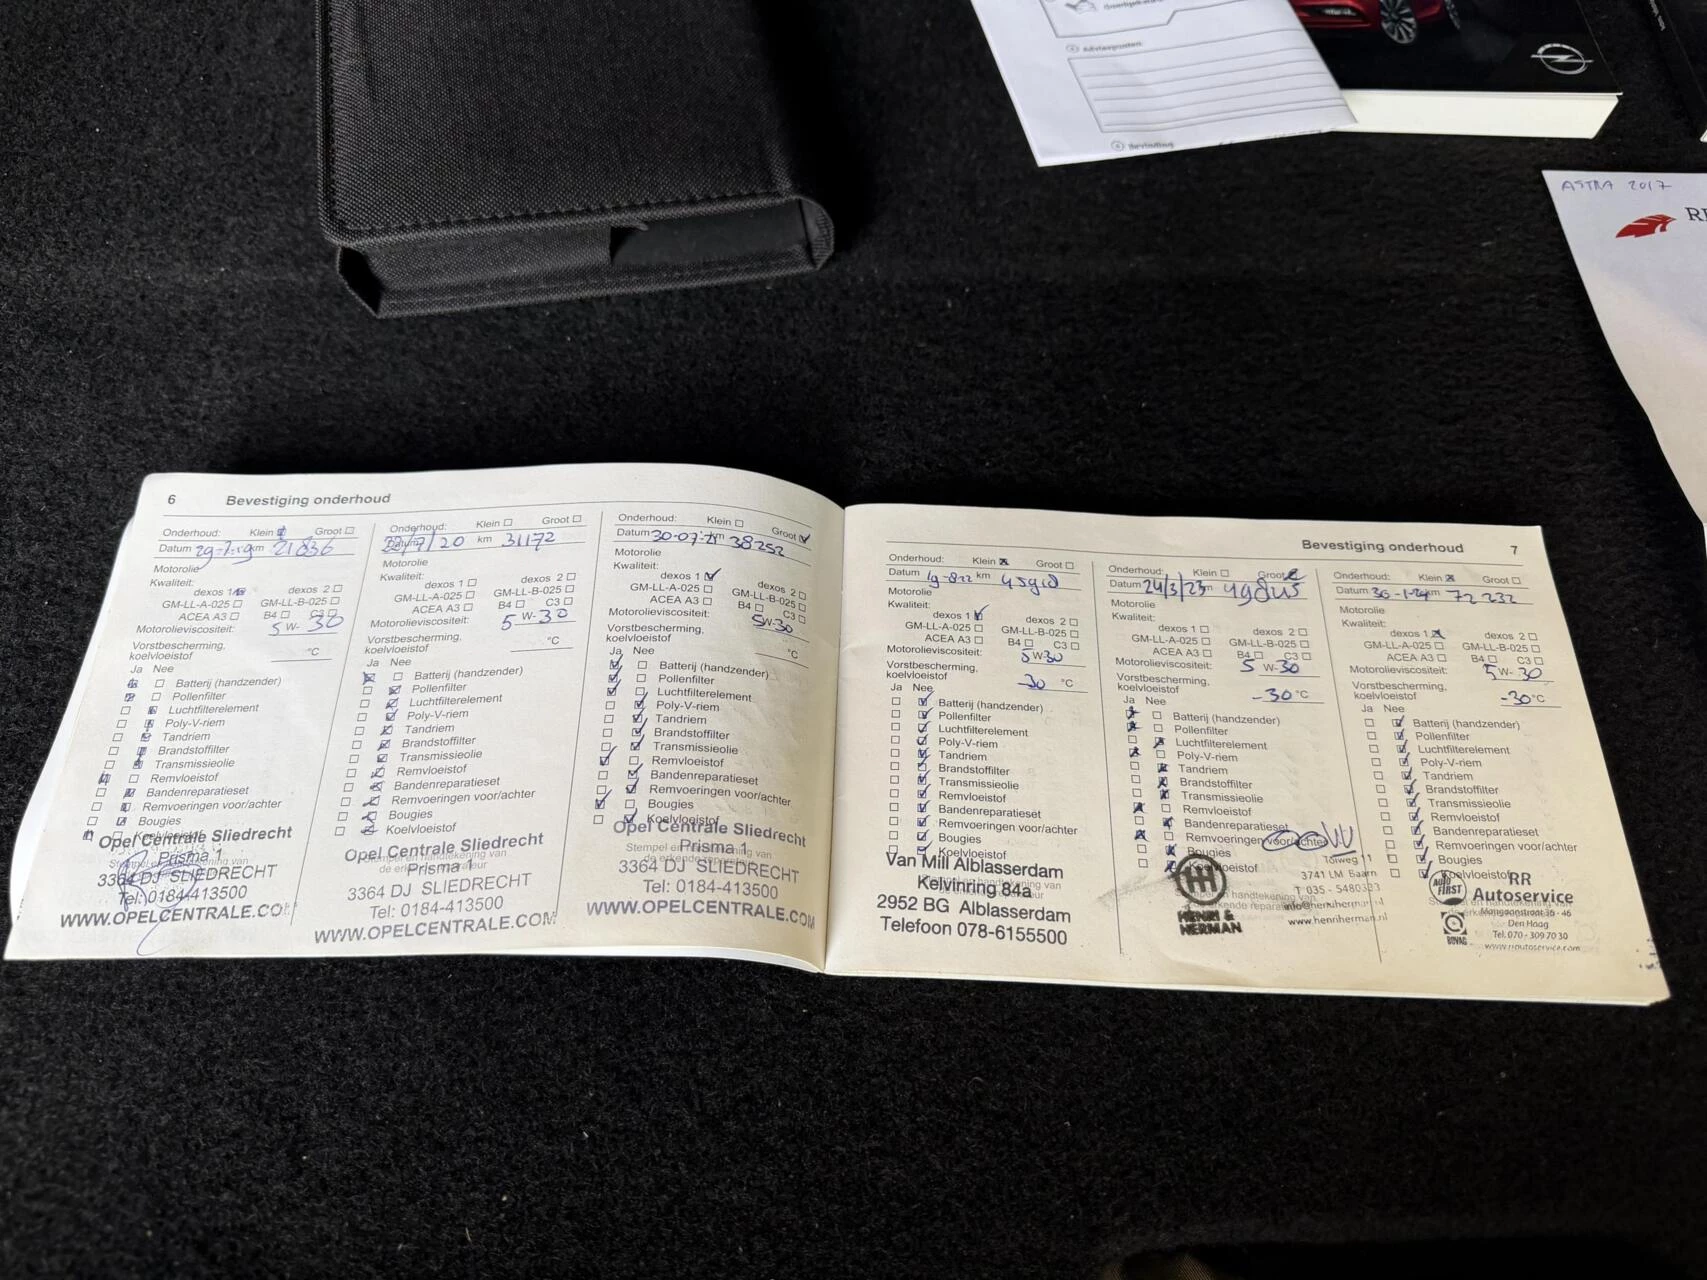 Adviespunten.
Bevinding
ASTRA 2017
6 Bevestiging onderhoud
Onderhoud: Klein Groot
Datum 29-7-19 km 21836
Motorolie
Kwaliteit:
dexos 1 dexos 2
GM-LL-A-025 GM-LL-B-025
ACEA A3 B4 C3
Motorolieviscositeit: 5 W- 30
Vorstbescherming,
koelvloeistof °C
Ja Nee
Batterij (handzender)
Pollenfilter
Luchtfilterelement
Poly-V-riem
Tandriem
Brandstoffilter
Transmissieolie
Remvloeistof
Bandenreparatieset
Remvoeringen voor/achter
Bougies
Koelvloeistof
Opel Centrale Sliedrecht
Stempel en handtekening van
Prisma 1
3364 DJ SLIEDRECHT
Tel: 0184-413500
WWW.OPELCENTRALE.COM
Onderhoud: Klein Groot
Datum 22/7/20 km 31172
Motorolie
Kwaliteit:
dexos 1 dexos 2
GM-LL-A-025 GM-LL-B-025
ACEA A3 B4 C3
Motorolieviscositeit: 5 W- 30
Vorstbescherming,
koelvloeistof °C
Ja Nee
Batterij (handzender)
Pollenfilter
Luchtfilterelement
Poly-V-riem
Tandriem
Brandstoffilter
Transmissieolie
Remvloeistof
Bandenreparatieset
Remvoeringen voor/achter
Bougies
Koelvloeistof
Opel Centrale Sliedrecht
Stempel en handtekening van
Prisma 1
3364 DJ SLIEDRECHT
Tel: 0184-413500
WWW.OPELCENTRALE.COM
Onderhoud: Klein Groot
Datum 30-07-21 38252
Motorolie
Kwaliteit:
dexos 1 dexos 2
GM-LL-A-025 GM-LL-B-025
ACEA A3 B4 C3
Motorolieviscositeit: 5W-30
Vorstbescherming,
koelvloeistof °C
Ja Nee
Batterij (handzender)
Pollenfilter
Luchtfilterelement
Poly-V-riem
Tandriem
Brandstoffilter
Transmissieolie
Remvloeistof
Bandenreparatieset
Remvoeringen voor/achter
Bougies
Koelvloeistof
Opel Centrale Sliedrecht
Stempel en handtekening van
Prisma 1
de erkende reparateur
3364 DJ SLIEDRECHT
Tel: 0184-413500
WWW.OPELCENTRALE.COM
Bevestiging onderhoud 7
Onderhoud: Klein Groot
Datum 19-8-22 km
Motorolie
Kwaliteit:
dexos 1 dexos 2
GM-LL-A-025 GM-LL-B-025
ACEA A3 B4 C3
Motorolieviscositeit: 5 W30
Vorstbescherming,
koelvloeistof -30 °C
Ja Nee
Batterij (handzender)
Pollenfilter
Luchtfilterelement
Poly-V-riem
Tandriem
Brandstoffilter
Transmissieolie
Remvloeistof
Bandenreparatieset
Remvoeringen voor/achter
Bougies
Koelvloeistof
Van Mill Alblasserdam
Kelvinring 84a
2952 BG Alblasserdam
Telefoon 078-6155500
Onderhoud: Klein Groot
Datum 24/3/23
Motorolie
Kwaliteit:
dexos 1 dexos 2
GM-LL-A-025 GM-LL-B-025
ACEA A3 B4 C3
Motorolieviscositeit: 5 W-30
Vorstbescherming,
koelvloeistof -30 °C
Ja Nee
Batterij (handzender)
Pollenfilter
Luchtfilterelement
Poly-V-riem
Tandriem
Brandstoffilter
Transmissieolie
Remvloeistof
Bandenreparatieset
Remvoeringen voor/achter
Bougies
Koelvloeistof
Tolweg 11
3741 LM Baarn
T 035 - 5480323
HENRI &
HERMAN
www.henriherman.nl
Onderhoud: Klein Groot
Datum 30-1-24 km 72232
Motorolie
Kwaliteit:
dexos 1 dexos 2
GM-LL-A-025 GM-LL-B-025
ACEA A3 B4 C3
Motorolieviscositeit: 5 W- 30
Vorstbescherming,
koelvloeistof -30 °C
Ja Nee
Batterij (handzender)
Pollenfilter
Luchtfilterelement
Poly-V-riem
Tandriem
Brandstoffilter
Transmissieolie
Remvloeistof
Bandenreparatieset
Remvoeringen voor/achter
Bougies
Koelvloeistof
AUTO FIRST
RR
Autoservice
Den Haag
Tel. 070 - 309 70 30
www.rrautoservice.com
BOVAG